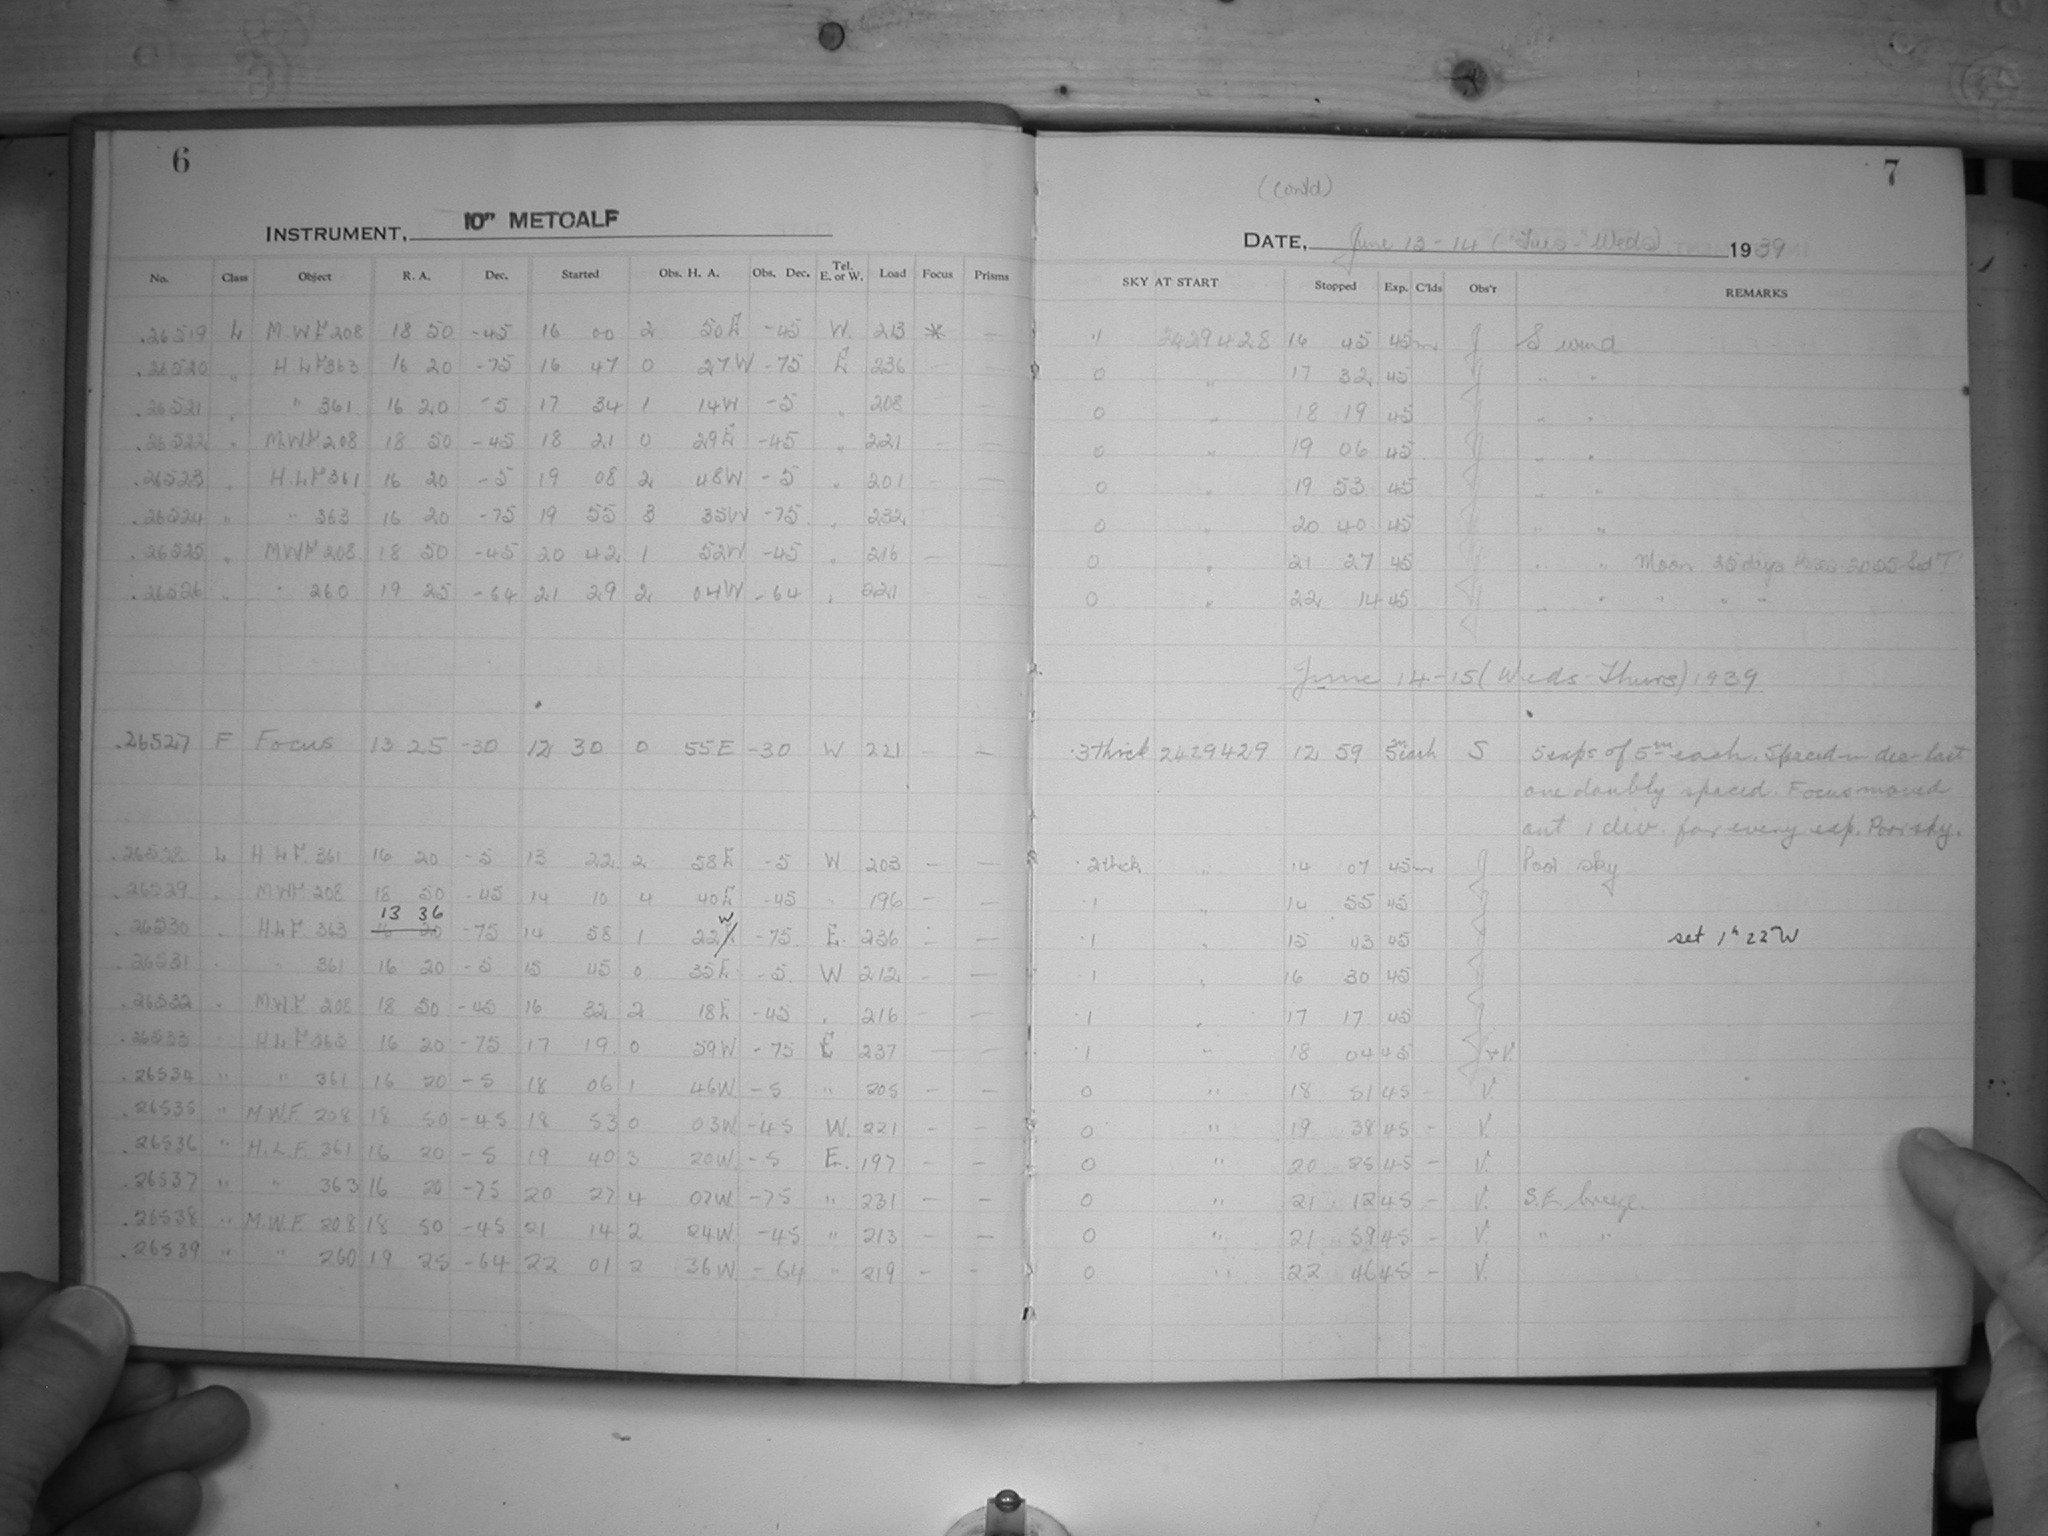 6
INSTRUMENT, 10" METCALF
No. Class Object R. A. Dec. Started Obs. H. A. Obs. Dec. Tel. E. or W. Load Focus Prisms
.26519 L M.W.F 208 18 50 -45 16 00 2 50E -45 W. 213 * —
.26520 " H.L.F 363 16 20 -75 16 47 0 27W -75 E 236 — —
.26521 " " 361 16 20 -5 17 34 1 14W -5 " 208 —
.26522 " M.W.F 208 18 50 -45 18 21 0 29E -45 " 221 — —
.26523 " H.L.F 361 16 20 -5 19 08 2 48W -5 " 201 — —
.26524 " " 363 16 20 -75 19 55 3 35W -75 " 232 — —
.26525 " MWF 208 18 50 -45 20 42 1 52W -45 " 216 — —
.26526 " " 260 19 25 -64 21 29 2 04W -64 " 221 — —
.26527 F Focus 13 25 -30 12 30 0 55E -30 W 221 — —
.26528 L H.L.F. 361 16 20 -5 13 22 2 58E -5 W 203 — —
.26529 " M.W.F 208 18 50 -45 14 10 4 40E -45 " 196 — —
13 36 W
.26530 " H.L.F. 363 16 20 -75 14 58 1 22E -75 E. 236 — —
.26531 " " 361 16 20 -5 15 45 0 35E -5 W 212 — —
.26532 " M.W.F 208 18 50 -45 16 32 2 18E -45 " 216 — —
.26533 " H.L.F 363 16 20 -75 17 19 0 59W -75 E 237 — —
.26534 " " 361 16 20 -5 18 06 1 46W -5 " 205 — —
.26535 " M.W.F. 208 18 50 -45 18 53 0 03W -45 W. 221 — —
.26536 " H.L.F. 361 16 20 -5 19 40 3 20W -5 E. 197 — —
.26537 " " 363 16 20 -75 20 27 4 07W -75 " 231 — —
.26538 " M.W.F. 208 18 50 -45 21 14 2 24W -45 " 213 — —
.26539 " " 260 19 25 -64 22 01 2 36W -64 " 219 — —
7
(Cont'd)
DATE, June 13-14 (Tues-Weds) 1939
SKY AT START Stopped Exp. C'lds Obs'r REMARKS
.1 2429428 16 45 45m J S wind
0 " 17 32 45 " "
0 " 18 19 45 " "
0 " 19 06 45 " "
0 " 19 53 45 " "
0 " 20 40 45 " "
0 " 21 27 45 " " Moon 25 days Rises 2005 Sid T
0 " 22 14 45 " " " " "
June 14-15 (Weds-Thurs) 1939
.3 thick 2429429 12 59 5m each S 5 exps of 5m each. Spaced in dec- last
one doubly spaced. Focus moved
out 1 div. for every exp. Poor sky.
.2 thick " 14 07 45m J Poor sky
.1 " 14 55 45
.1 " 15 43 45 set 1h 22m W
.1 " 16 30 45
.1 " 17 17 45
.1 " 18 04 45 J+V.
0 " 18 51 45 - V.
0 " 19 38 45 - V.
0 " 20 25 45 - V.
0 " 21 12 45 - V. S.E. breeze.
0 " 21 59 45 - V. " "
0 " 22 46 45 - V.